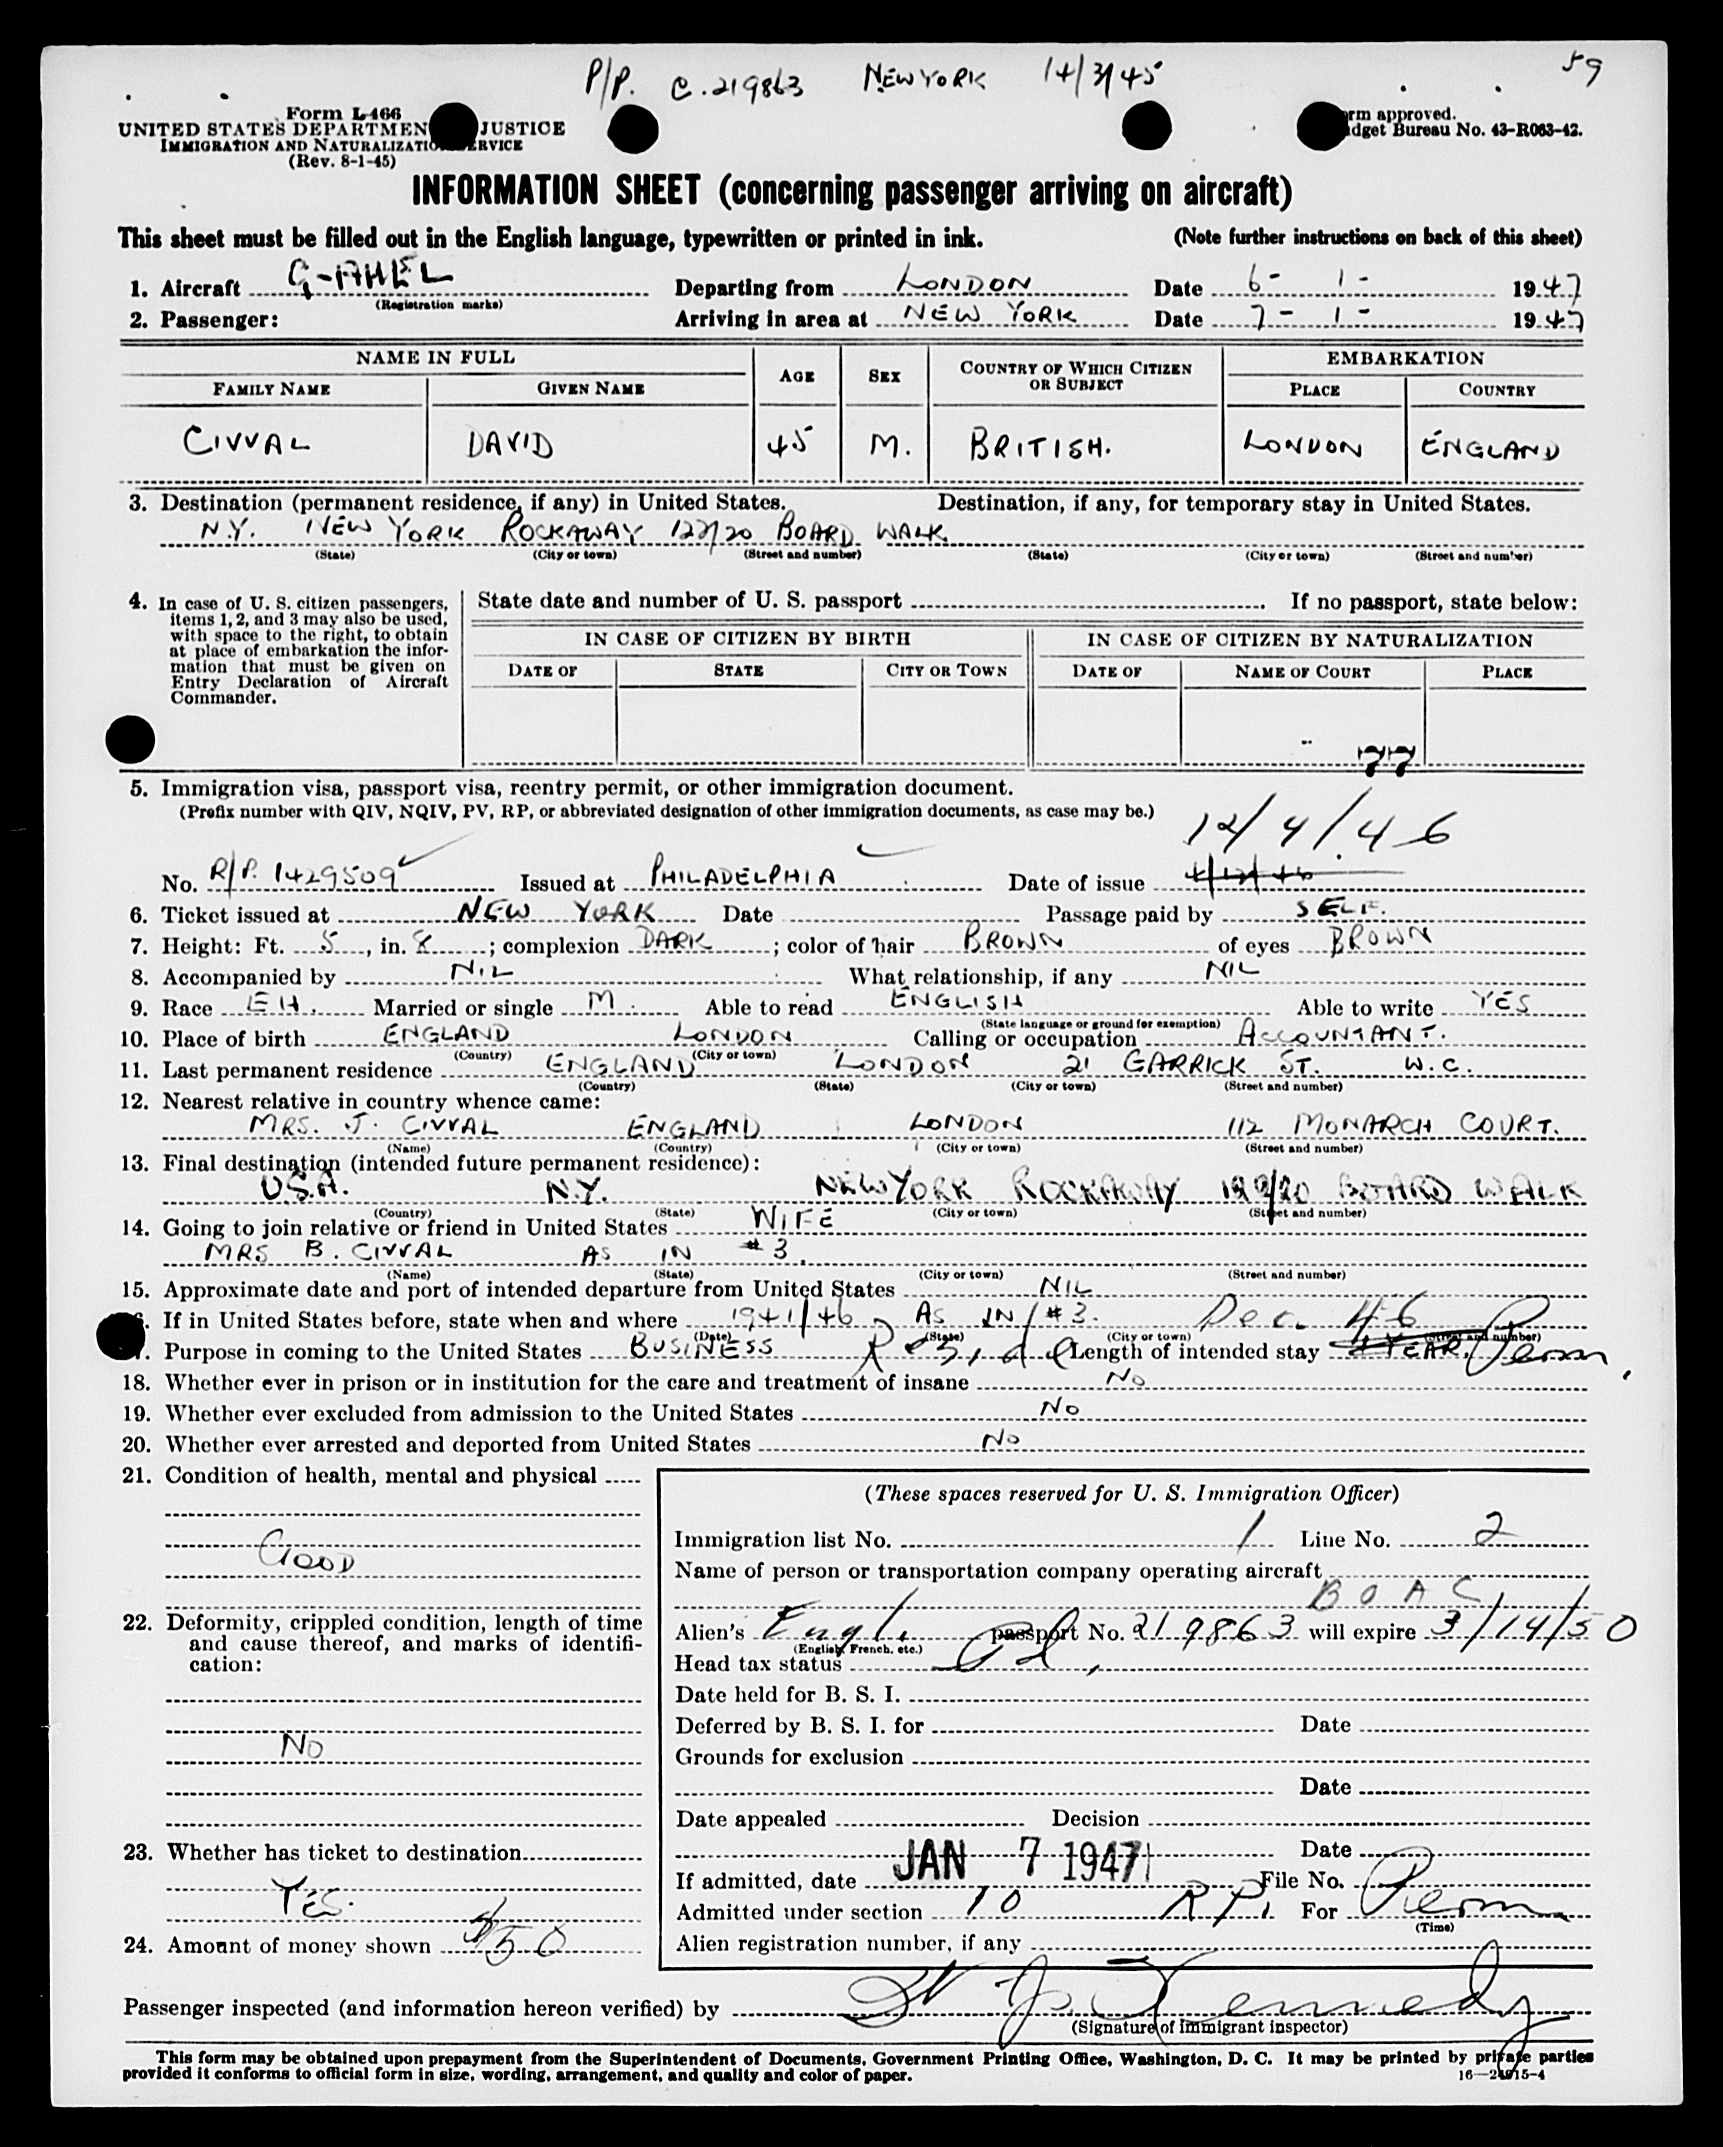 P/P. C.219863 NEW YORK 14/3/45
59
Form I-466
UNITED STATES DEPARTMENT JUSTICE
IMMIGRATION AND NATURALIZATION SERVICE
(Rev. 8-1-45)
Form approved.
Budget Bureau No. 43-R063-42.
INFORMATION SHEET (concerning passenger arriving on aircraft)
This sheet must be filled out in the English language, typewritten or printed in ink. (Note further instructions on back of this sheet)
1. Aircraft G-AHEL Departing from LONDON Date 6- 1- 1947
(Registration marks)
2. Passenger: Arriving in area at NEW YORK Date 7- 1- 1947
NAME IN FULL AGE SEX COUNTRY OF WHICH CITIZEN OR SUBJECT EMBARKATION
FAMILY NAME GIVEN NAME PLACE COUNTRY
CIVVAL DAVID 45 M. BRITISH. LONDON ENGLAND
3. Destination (permanent residence, if any) in United States. Destination, if any, for temporary stay in United States.
N.Y. NEW YORK ROCKAWAY 122/20 BOARD WALK.
(State) (City or town) (Street and number) (State) (City or town) (Street and number)
4. In case of U. S. citizen passengers, items 1, 2, and 3 may also be used, with space to the right, to obtain at place of embarkation the information that must be given on Entry Declaration of Aircraft Commander.
State date and number of U. S. passport . If no passport, state below:
IN CASE OF CITIZEN BY BIRTH IN CASE OF CITIZEN BY NATURALIZATION
DATE OF STATE CITY OR TOWN DATE OF NAME OF COURT PLACE
77
5. Immigration visa, passport visa, reentry permit, or other immigration document.
(Prefix number with QIV, NQIV, PV, RP, or abbreviated designation of other immigration documents, as case may be.)
12/4/46
No. R/P. 1429509 Issued at PHILADELPHIA Date of issue 4/12/46
6. Ticket issued at NEW YORK Date Passage paid by SELF.
7. Height: Ft. 5, in. 8; complexion DARK; color of hair BROWN of eyes BROWN
8. Accompanied by NIL What relationship, if any NIL
9. Race EH. Married or single M. Able to read ENGLISH Able to write YES
(State language or ground for exemption)
10. Place of birth ENGLAND LONDON Calling or occupation ACCOUNTANT.
(Country) (City or town)
11. Last permanent residence ENGLAND LONDON 21 GARRICK ST. W.C.
(Country) (State) (City or town) (Street and number)
12. Nearest relative in country whence came:
MRS. J. CIVVAL ENGLAND LONDON 112 MONARCH COURT.
(Name) (Country) (City or town) (Street and number)
13. Final destination (intended future permanent residence):
U.S.A. N.Y. NEW YORK ROCKAWAY 122/20 BOARD WALK
(Country) (State) (City or town) (Street and number)
14. Going to join relative or friend in United States WIFE
MRS B. CIVVAL AS IN #3.
(Name) (State) (City or town) (Street and number)
15. Approximate date and port of intended departure from United States NIL
16. If in United States before, state when and where 1941/46 AS IN #3. Dec. 46
(Date) (State) (City or town) (Street and number)
17. Purpose in coming to the United States BUSINESS Reside Length of intended stay YEAR. Perm.
18. Whether ever in prison or in institution for the care and treatment of insane NO
19. Whether ever excluded from admission to the United States NO
20. Whether ever arrested and deported from United States NO
21. Condition of health, mental and physical
GOOD
22. Deformity, crippled condition, length of time and cause thereof, and marks of identification:
NO
23. Whether has ticket to destination
YES.
24. Amount of money shown $50
(These spaces reserved for U. S. Immigration Officer)
Immigration list No. 1 Line No. 2
Name of person or transportation company operating aircraft
BOAC
Alien's Engl. passport No. 219863 will expire 3/14/50
(English, French, etc.)
Head tax status Pd.
Date held for B. S. I.
Deferred by B. S. I. for Date
Grounds for exclusion
Date
Date appealed Decision
Date
If admitted, date JAN 7 1947 File No.
Admitted under section 10 RP. For Perm
(Time)
Alien registration number, if any
Passenger inspected (and information hereon verified) by Kennedy
(Signature of immigrant inspector)
This form may be obtained upon prepayment from the Superintendent of Documents, Government Printing Office, Washington, D. C. It may be printed by private parties
provided it conforms to official form in size, wording, arrangement, and quality and color of paper. 16—24915-4